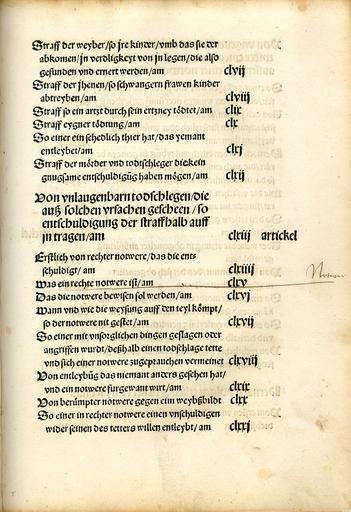 Straff der weyber/so jre kinder/vmb das sie der
abkomen/jn verdligkeyt von jn legen/die also
gefunden vnd ernert werden/am clvij
Straff der Jhenen/so schwangern frawen kinder
abtreyben/am clviij
Straff so ein artzt durch sein ertzney tödtet/am clix
Straff eygner tödtung/am clx
So einer ein schedlich thier hat/das yemant
entleybet/am clxj
Straff der mörder vnd todschleger die kein
gnugsame entschuldigūg haben mögen/am clxij
Von vnlaugenbarn todschlegen/die
auß solchen vrsachen gescheen/so
entschuldigung der straffhalb auff
jn tragen/am clxiij artickel
Erstlich von rechter notwere/das die ents
schuldigt/am clxiiij
Was ein rechte notwere ist/am clxv
Das die notwere bewisen sol werden/am clxvj
Wann vnd wie die weysung auff den teyl kömpt/
so der notwere nit gestet/am clxvij
So einer mit vnsorglichen dingen geslagen oder
angriffen wurdt/deßhalb einen todschlage tette
vnd sich einer notwere zugeprauchen vermeinet clxviij
Von entleybūg das niemant anders gesehen hat/
vnd ein notwere furgewant wirt/am clxix
Von berümpter notwere gegen eim weybßbild clxx
So einer in rechter notwere einen vnschuldigen
wider seinen des tetters willen entleybt/am clxxj